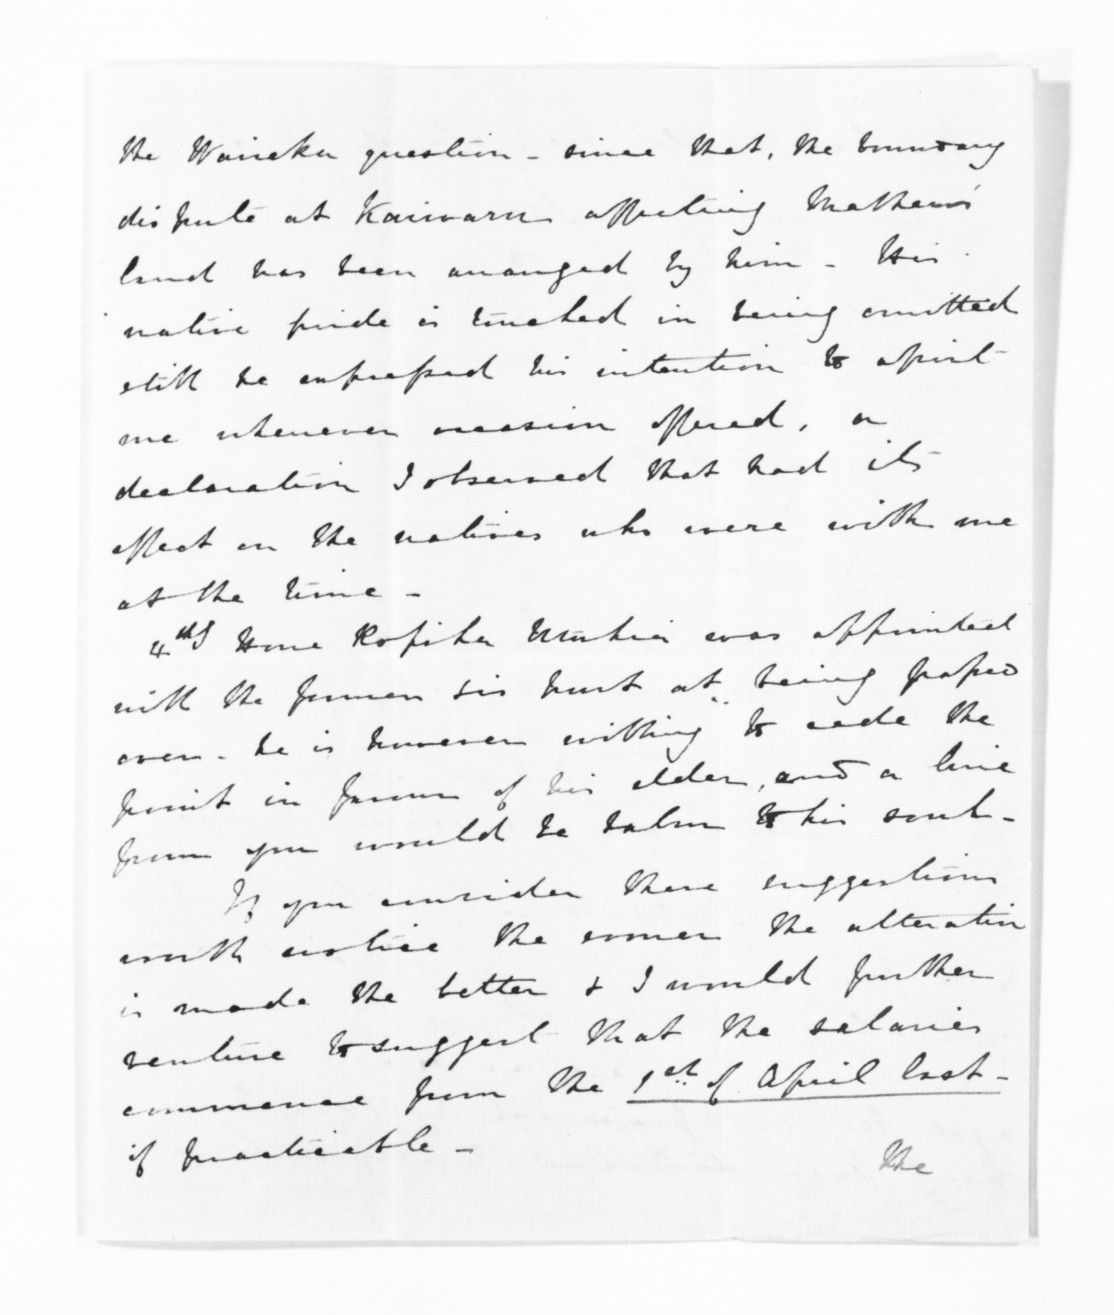 the question - since that, the boundary
dispute at affecting Mathew's
land has been arranged by him - His
native pride is touched in being omitted
still he expressed his intention to assist
me whenever occasion offered, a
declaration I observed that had its
effect on the natives who were with me
at the time -
4th Hone was appointed
with the former his hurt at being passed
over - he is however willing to cede the
point in favour of his elder, and a line
from you would be balm to his soul -
If you consider these suggestions
worth notice the sooner the alteration
is made the better & I would further
venture to suggest that the salaries
commence from the 1st of April last -
if practicable -
the